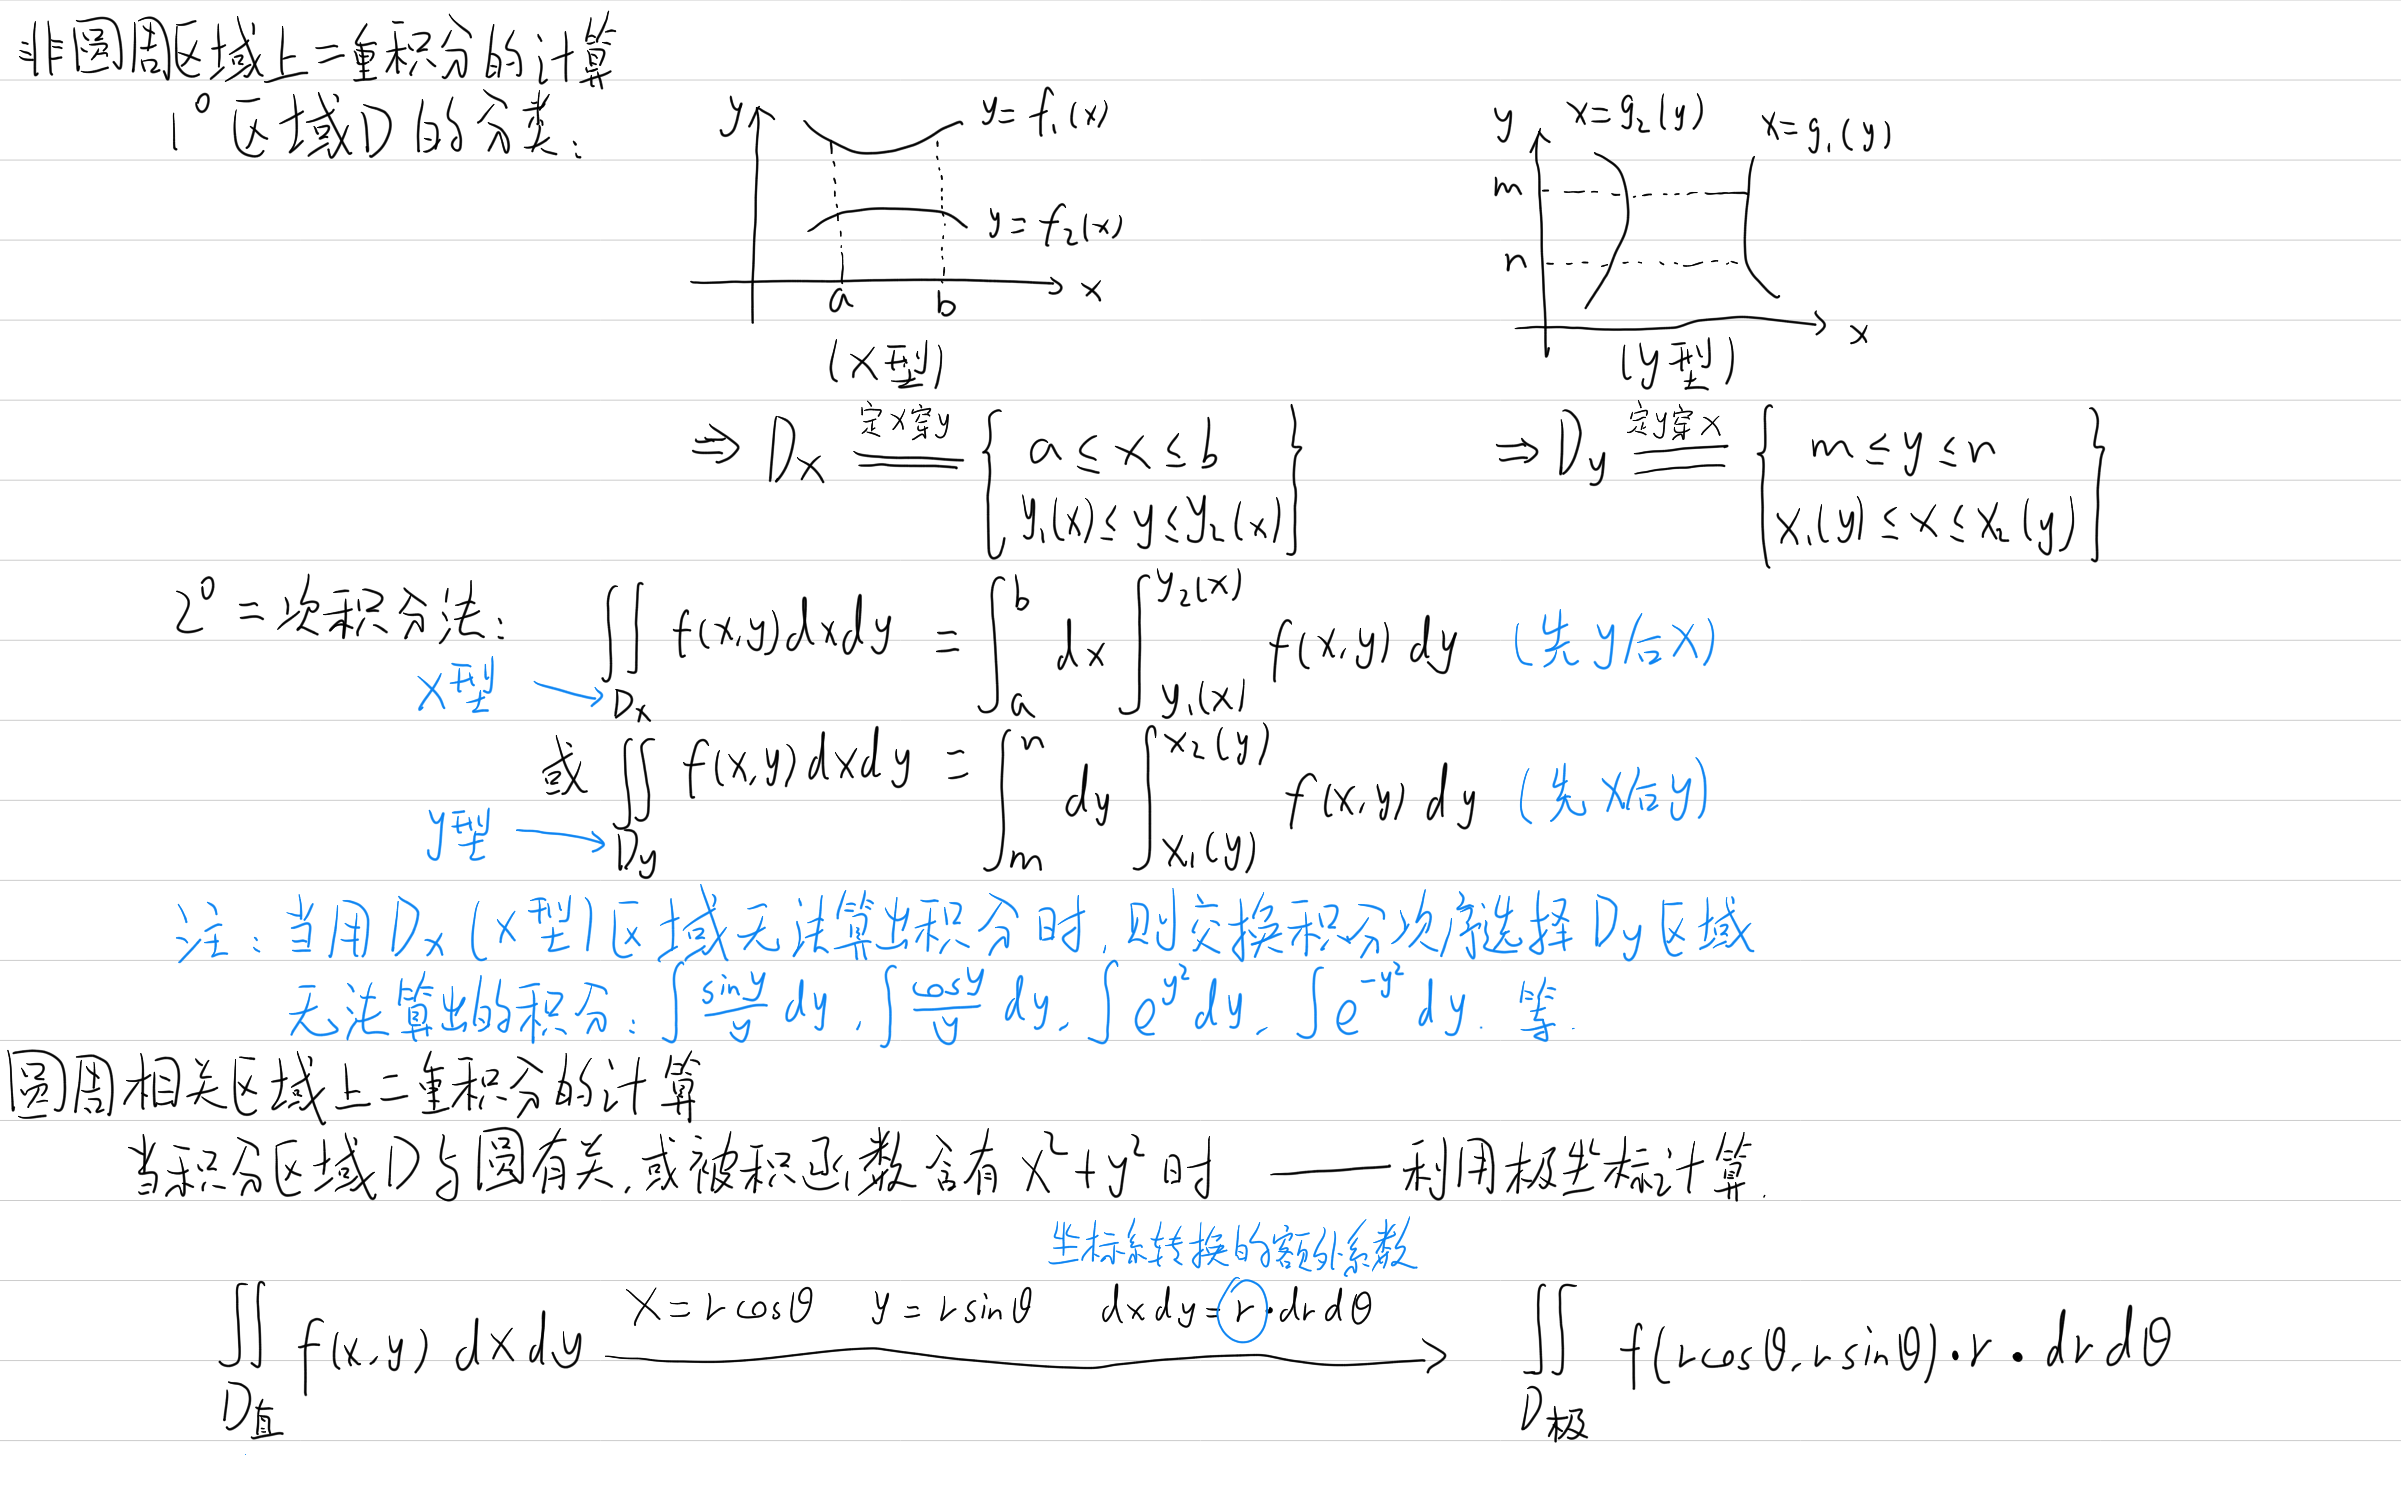 非圆周区域上二重积分的计算
1° 区域D的分类:
y
y=f₁(x)
y=f₂(x)
a b x
(X型)
y x=g₂(y) x=g₁(y)
m
n
x
(y型)
⇒ Dx 定x穿y { a≤x≤b
y₁(x)≤y≤y₂(x) }
⇒ Dy 定y穿x { m≤y≤n
x₁(y)≤x≤x₂(y) }
2° 二次积分法: ∬_{Dx} f(x,y)dxdy = ∫_a^b dx ∫_{y₁(x)}^{y₂(x)} f(x,y) dy (先y后x)
X型
或 ∬_{Dy} f(x,y)dxdy = ∫_m^n dy ∫_{x₁(y)}^{x₂(y)} f(x,y) dy (先x后y)
y型
注: 当用Dx(x型)区域无法算出积分时,则交换积分次序选择Dy区域
无法算出的积分: ∫ sin y/y dy, ∫ cos y/y dy, ∫ e^{y²} dy, ∫ e^{-y²} dy. 等.
圆周相关区域上二重积分的计算
当积分区域D与圆有关,或被积函数含有x²+y²时 —— 利用极坐标计算.
坐标系转换的额外系数
∬_{D直} f(x,y) dxdy x=rcosθ y=rsinθ dxdy=r·drdθ → ∬_{D极} f(rcosθ,rsinθ)·r·drdθ